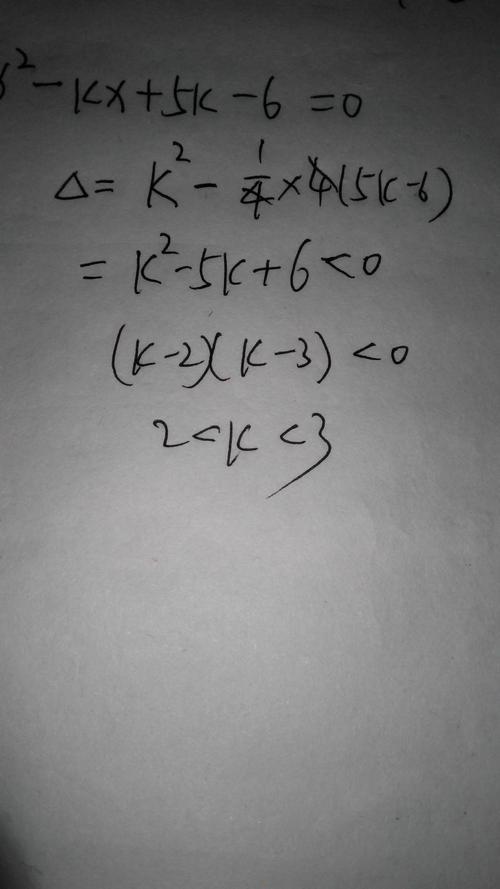 ² - kx + 5k - 6 = 0
Δ = k² - 1/4 × 4(5k-6)
= k² - 5k + 6 < 0
(k-2)(k-3) < 0
2 < k < 3